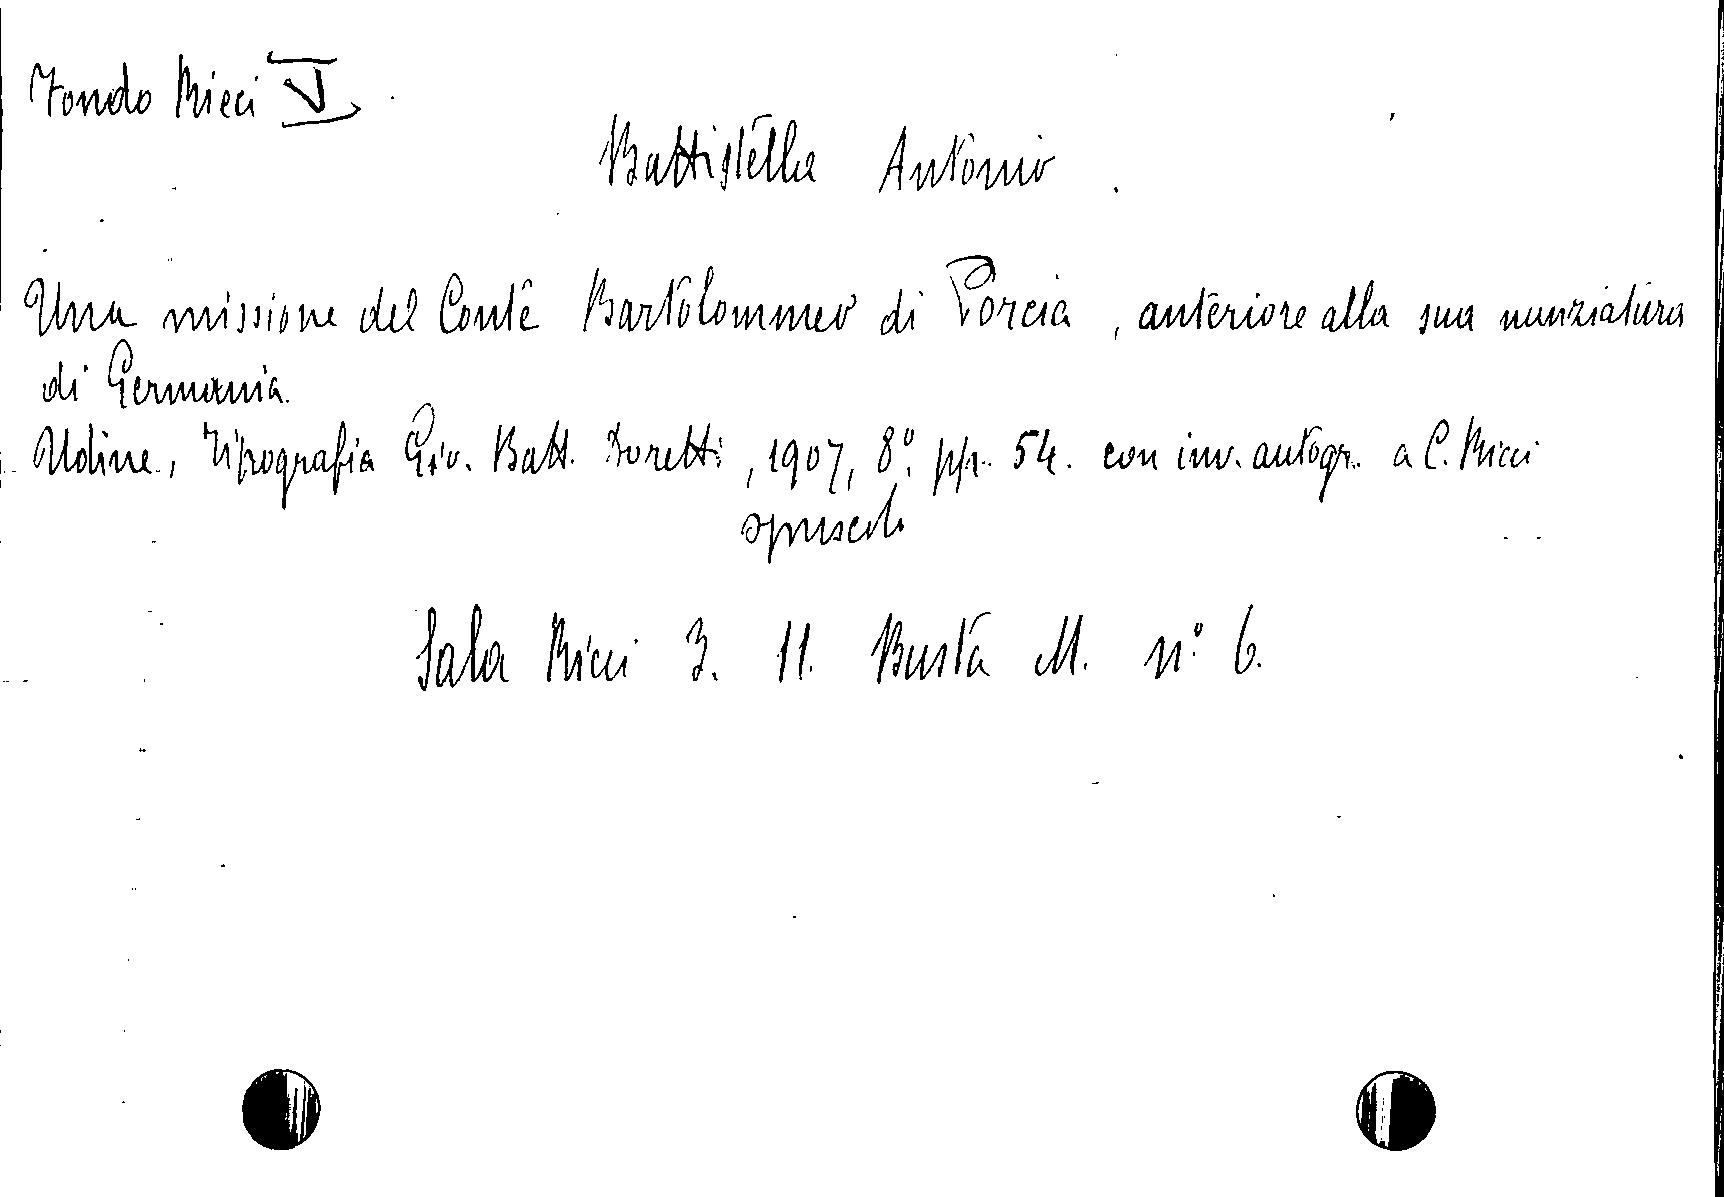 Fondo Ricci V
Battistella Antonio
Una missione del Conte Bartolommeo di Porcia, anteriore alla sua nunziatura
di Germania.
Udine, Tipografia Gio. Batt. Doretti, 1907, 8° pp. 54. con inv. autogr. a C. Ricci
opuscolo
Sala Ricci 3. 11. Busta M. n° 6.